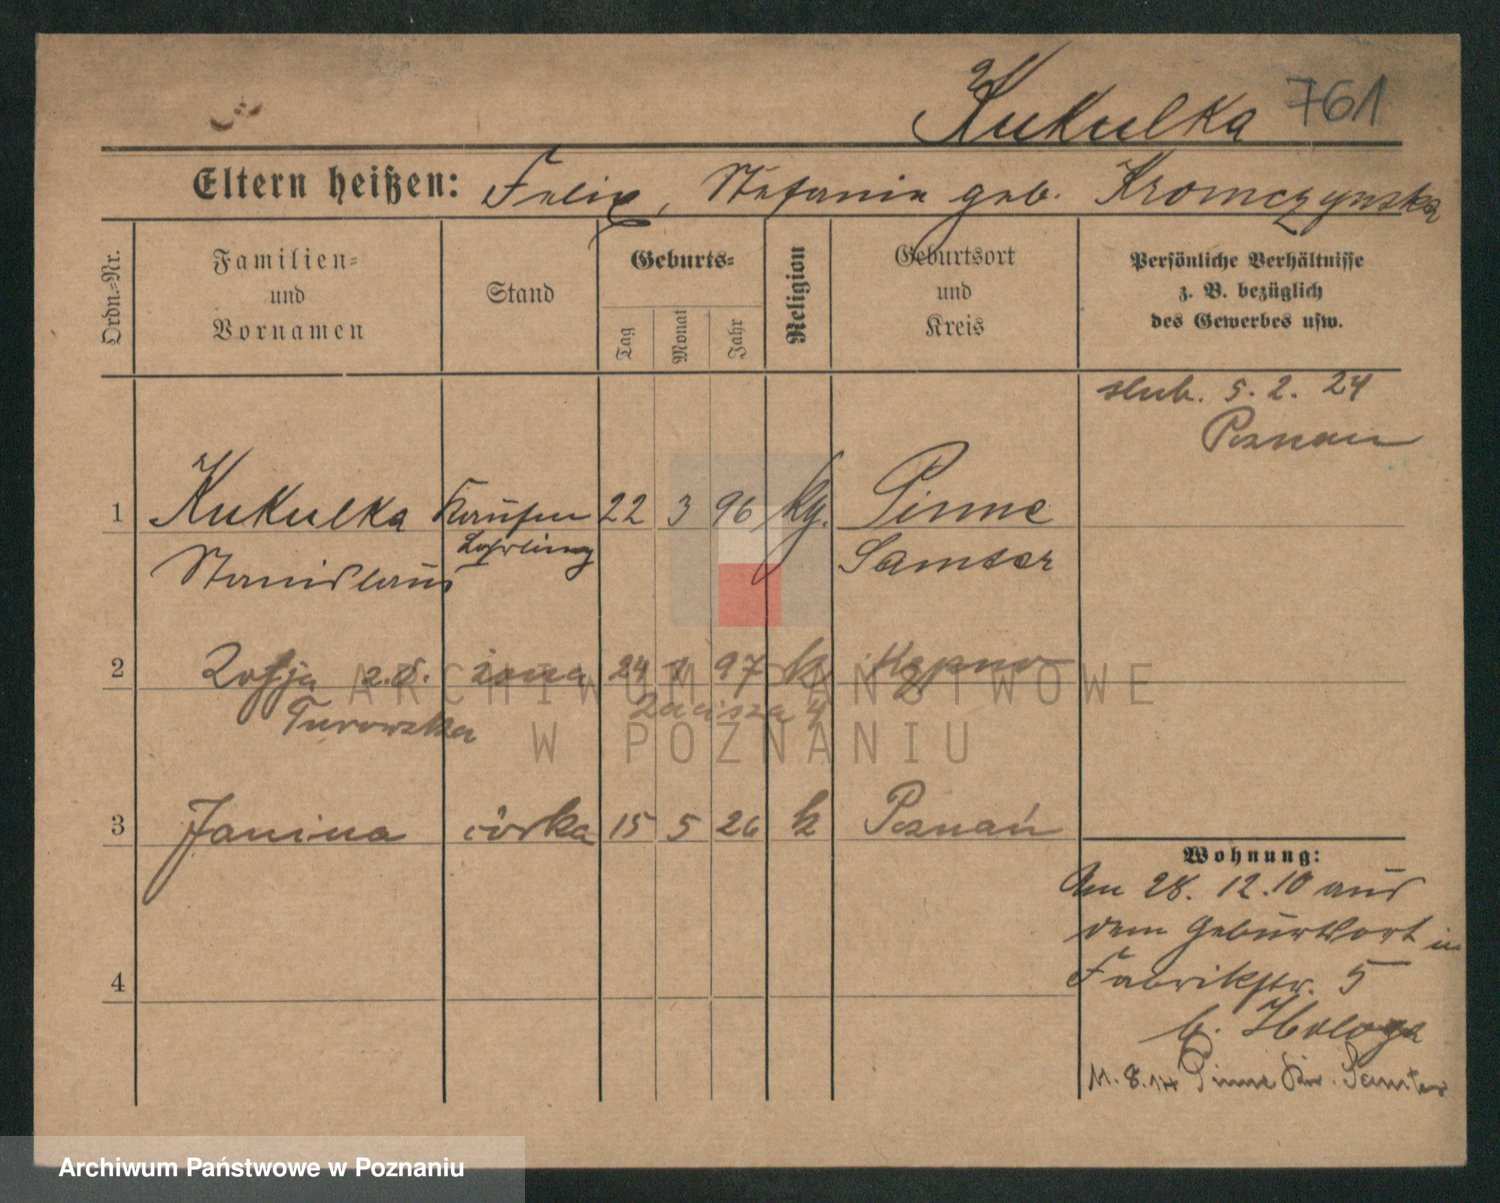 Kukulka 761
Eltern heißen: Felix, Stefanie geb. Kromczynska
Ordn.-Nr.
Familien-
und
Vornamen
Stand
Geburts-
Tag
Monat
Jahr
Religion
Geburtsort
und
Kreis
Persönliche Verhältnisse
z. B. bezüglich
des Gewerbes usw.
slub. 5. 2. 24
Poznan
1 Kukulka Kaufm 22 3 96 kg. Pinne
Stanislaus Lehrling Samter
2 Zofja z.d. żona 24 97 k Kępno
Turowska
3 Janina córka 15 5 26 k Poznań
4
Wohnung:
Am 28. 12. 10 aus
dem Geburtsort in
Fabrikstr. 5
b. Hologa
11. 8. 14 Pinne Kr. Samter
ARCHIWUM PAŃSTWOWE
W POZNANIU
Archiwum Państwowe w Poznaniu